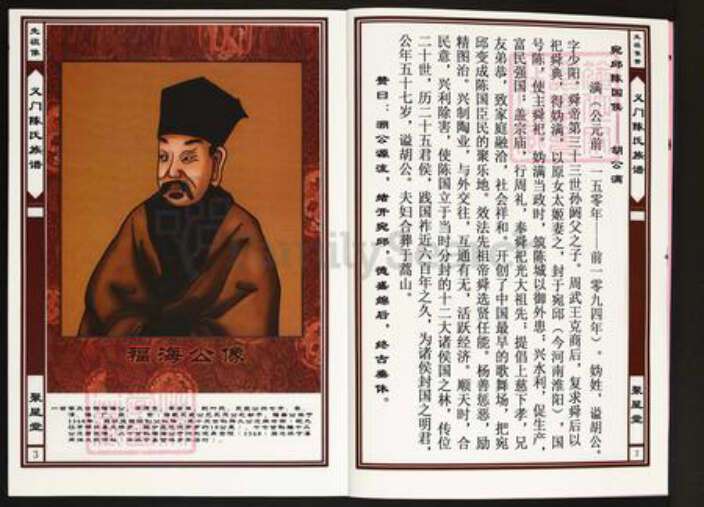 先祖像赞
义门陈氏族谱
聚星堂
宛邱陈国侯——胡公满
满（公元前一一五零年——前一零九四年）。妫姓，谥胡公，
字少阳，舜帝第三十三世孙阏父之子。周武王克商后，复求舜后以
祀舜典，得妫满，以原女太姬妻之，封于宛邱（今河南淮阳）国
号陈，使主舜祀。妫满当政时，筑陈城以御外患；兴水利，促生产，
富民强国；盖宗庙，行周礼，奉舜祀光大祖先；提倡上慈下孝，兄
友弟恭，致家庭融洽，社会祥和，开创了中国最早的歌舞场，把宛
邱变成陈国臣民的聚乐地。效法先祖帝舜选贤任能。杨善惩恶，励
精图治。兴制陶业，与外交往，互通有无，活跃经济。顺天时，合
民意，兴利除害，使陈国立于当时分封的十二大诸侯国之林，传位
二十世，历二十五君侯，践国祚近六百年之久，为诸侯封国之明君，
公年五十七岁，谥胡公。夫妇合葬于蒿山。
赞曰：溯公源流，绪开宛邱，德盛绵后，终古垂休。
先祖像
义门陈氏族谱
聚星堂
3
福海公像